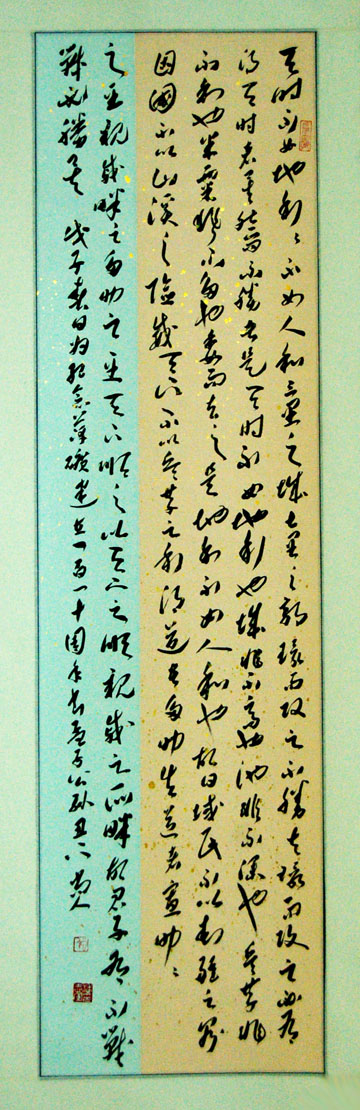 天时不如地利〻不如人和三里之城七里之郭環而攻之不勝夫環而攻之必有
得天时者矣然而不勝者是天时不如地利也城非不高也池非不深也兵革非
不利也米粟非不多也委而去之是地利不如人和也故曰域民不以封疆之界
固國不以山溪之險威天下不以兵革之利得道者多助失道者寡助〻
之至親戚畔之多助之至天下順之以天下之順親戚之所畔故君子有不戰
戰必勝矣 戊子春日为纪念萍礦建立一百一十周年书孟子公孙丑下